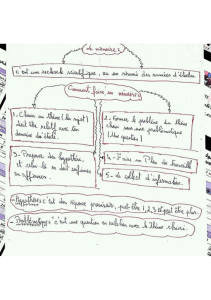 Le mémoire ?
c'est une recherche scientifique, ou un résumé des années d'études.
Comment faire un mémoire ?
1 - Choisir un thème (le sujet)
doit être relatif avec ton
domaine d'étude.
2 - Formuler le problème du thème
choisi sous une problématique
(Une question)
3 - Proposer des hypothèses,
et celles-là on doit confirmer
ou affirmer.
4 - Faire un Plan de travail
5 - La collecte d'informations.
- Hypothèses : c'est des réponses provisoires, peut être 1, 2, 3 et peut être plus.
- Problématique : c'est une question en relation avec le thème choisi.